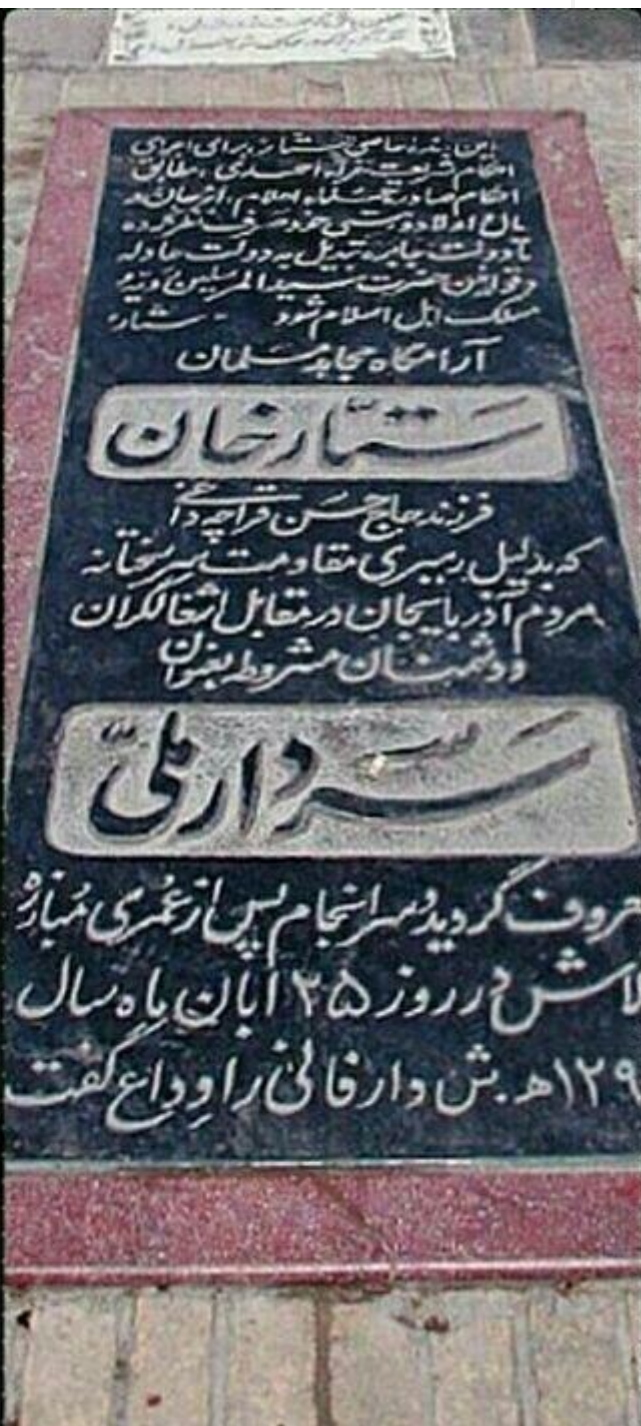 این بنده عاصی ستار، برای اجرای
احکام شریعت غراء احمدی، مطابق
احکام صادره علماء اعلام، از جان و
مال و اولاد و هستی خود صرف نظر کرده
تا دولت جابره تبدیل به دولت عادله
و قوانین حضرت سید المرسلین و
مسلک اهل اسلام شود - ستار
آرامگاه مجاهد مسلمان
ستّارخان
فرزند حاج حسن قراچه داغی
که بدلیل رهبری مقاومت سرسختانه
مردم آذربایجان در مقابل اشغالگران
و دشمنان مشروطه بعنوان
سردار ملّی
معروف گردید و سرانجام پس از عُمری مُبارزه
تلاش در روز ۲۵ آبان ماه سال
۱۲۹ ه.ش دار فانی را وداع گفت